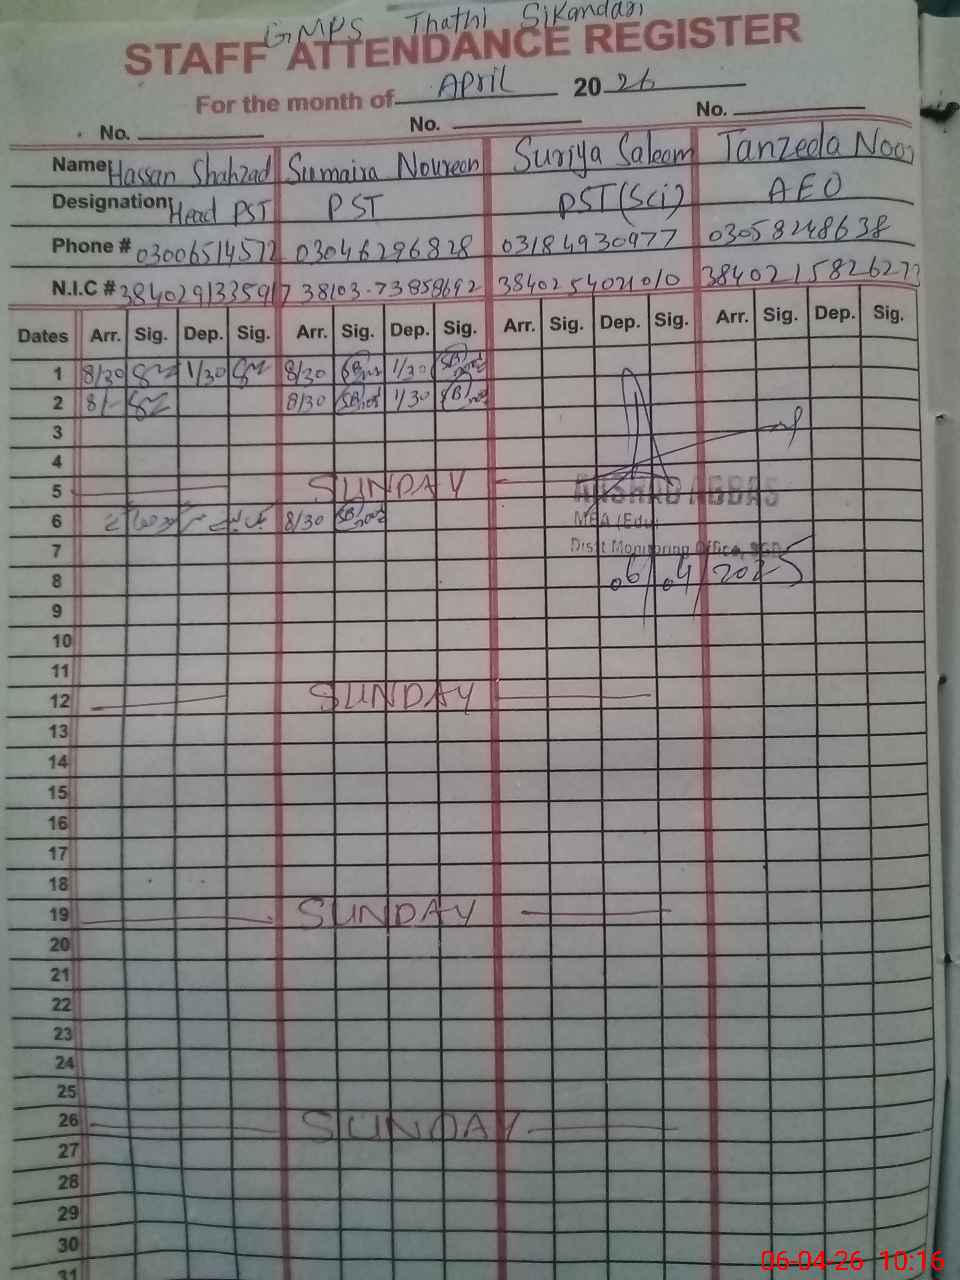 GMPS Thathi Sikandari
STAFF ATTENDANCE REGISTER
For the month of April 20 26
No. No. No.
Name: Hassan Shahzad Sumaira Noureen Suriya Saleem Tanzeela Noor
Designation: Head PST PST PST (Sci) AEO
Phone # 03006514572 03046296828 03184930977 03058248638
N.I.C # 3840291335917 38103-73858692 3840254021010 3840215826273
Dates Arr. Sig. Dep. Sig. Arr. Sig. Dep. Sig. Arr. Sig. Dep. Sig. Arr. Sig. Dep. Sig.
1 8/30 1/30 8/30 1/30
2 8/- 8/30 1/30
3
4
5 SUNDAY ARSHAD ABBAS
6 8/30 MEA (Edu)
7 Distt Monitoring Office, SGD
8 06/04/2025
9
10
11
12 SUNDAY
13
14
15
16
17
18
19 SUNDAY
20
21
22
23
24
25
26 SUNDAY
27
28
29
30
31
06-04-26 10:16